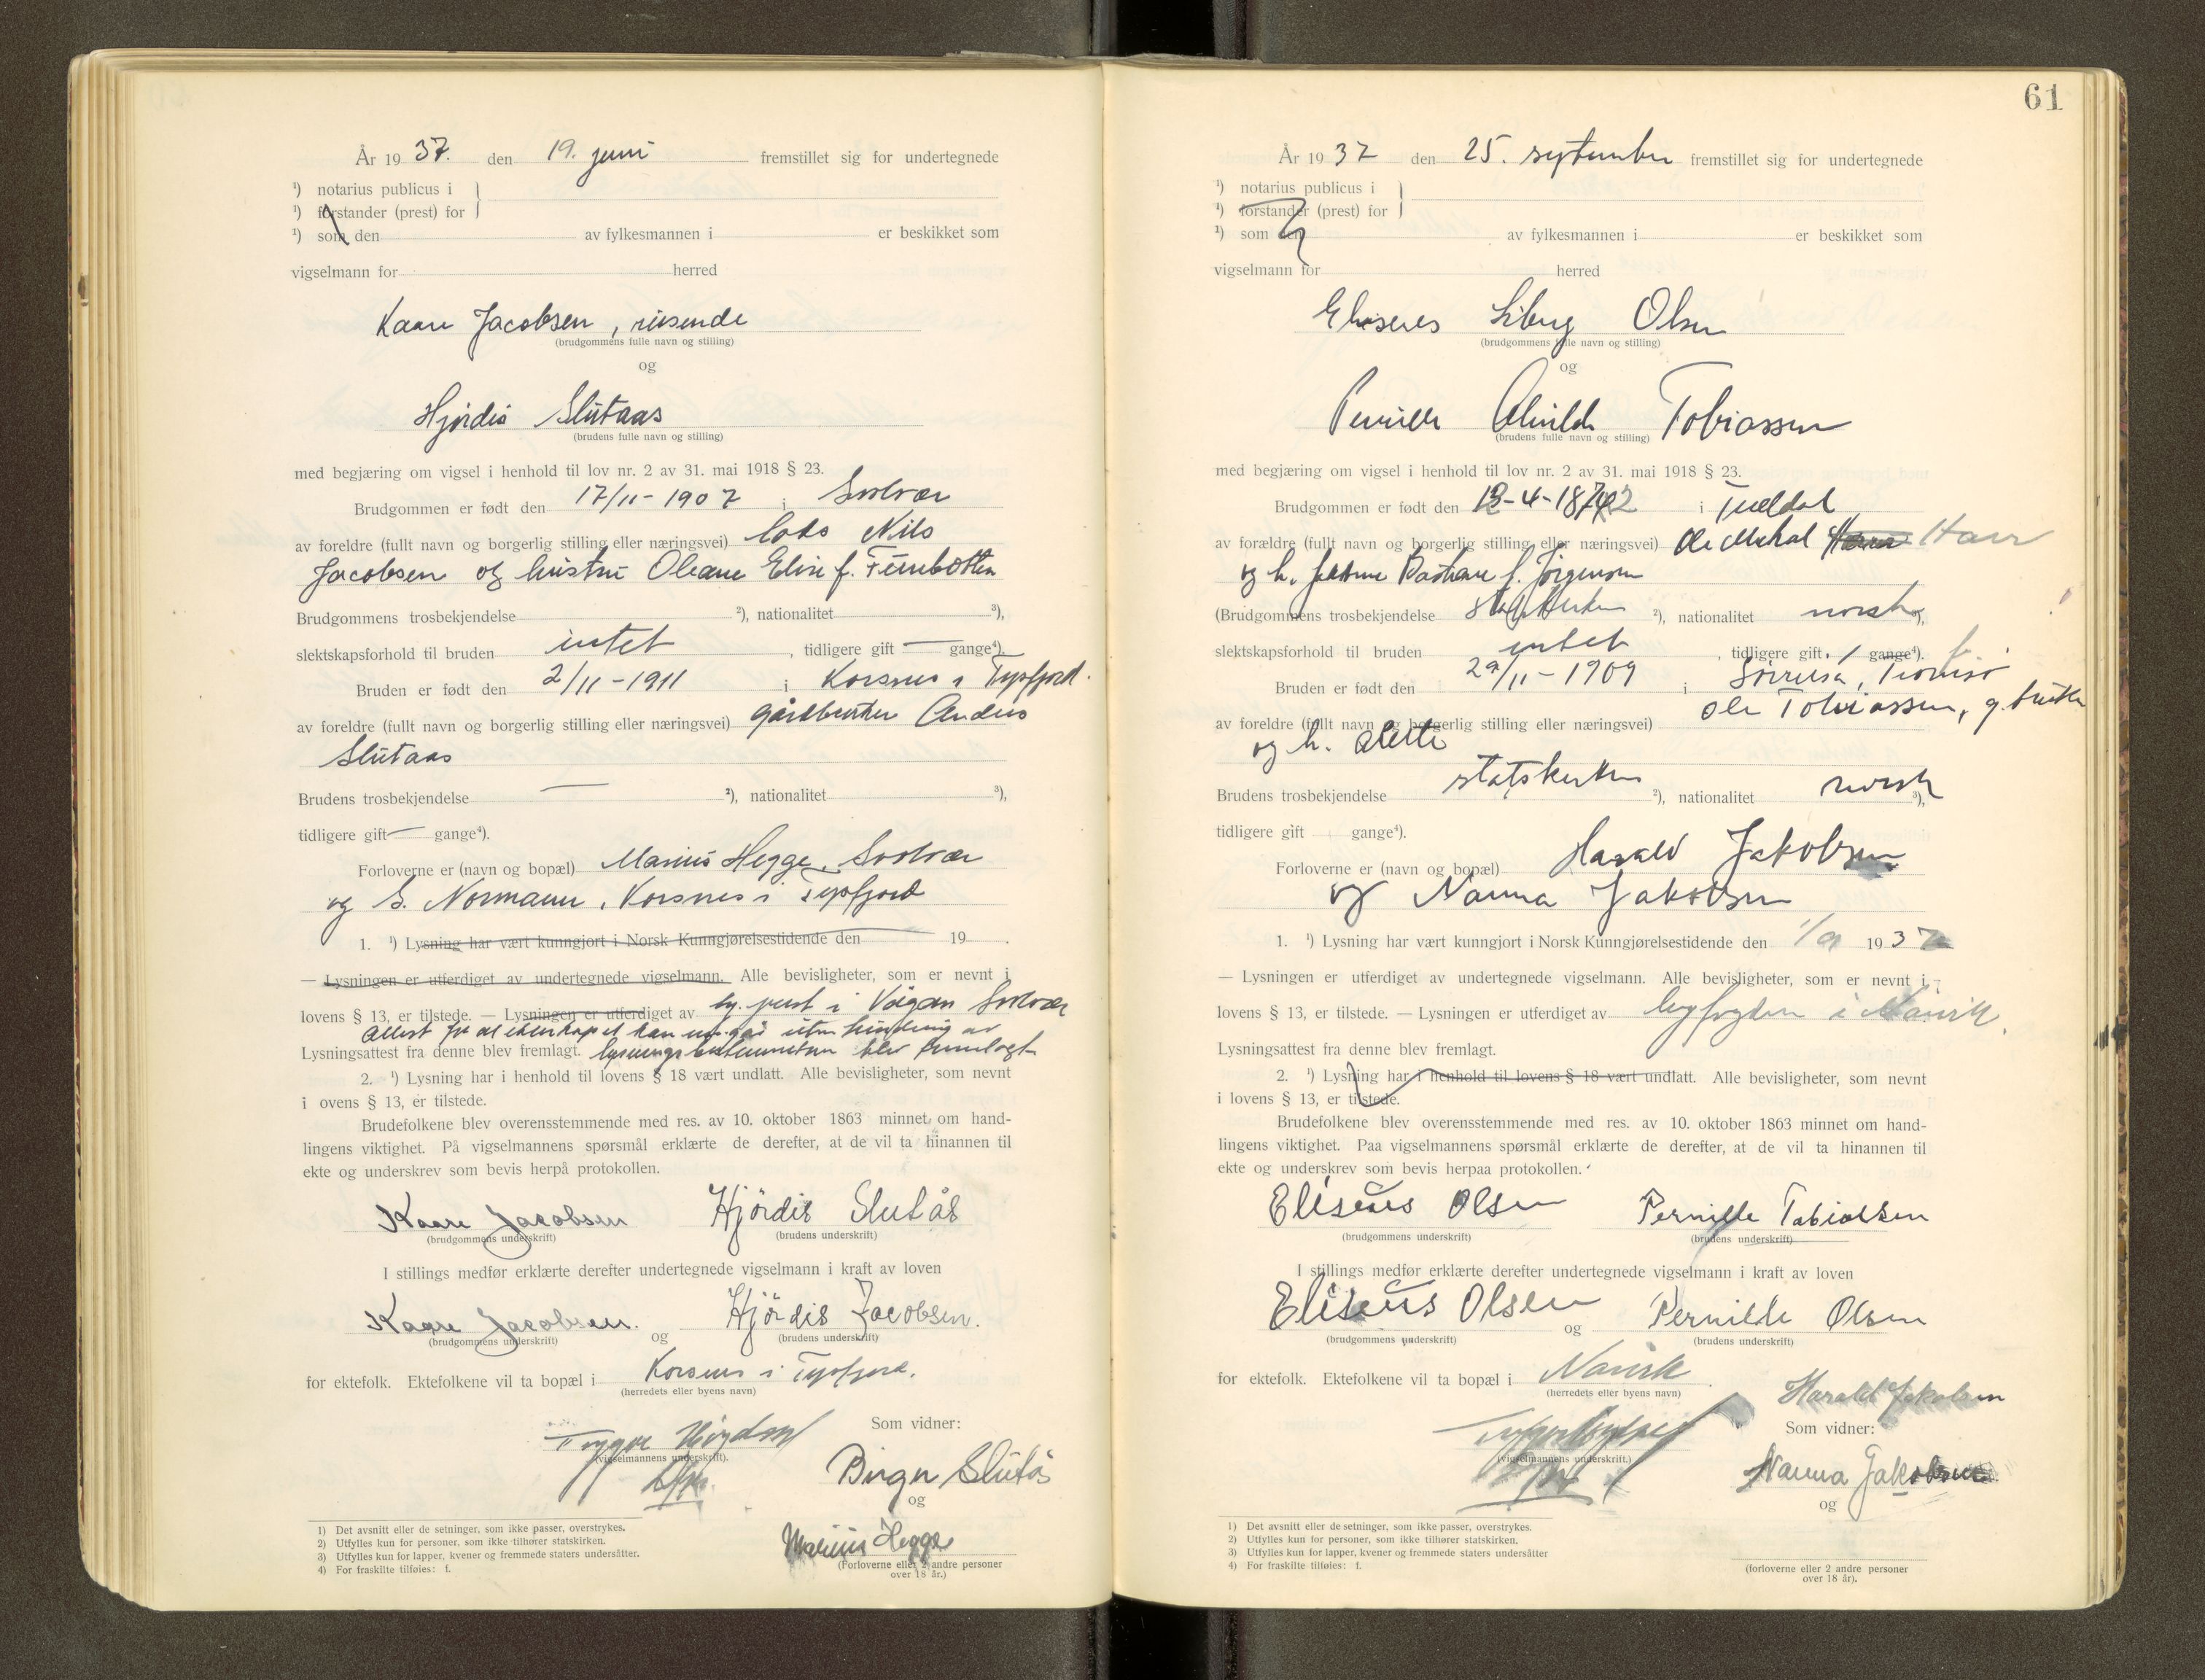 År 19 37. den 19. juni fremstillet sig for undertegnede
¹) notarius publicus i
¹) forstander (prest) for
¹) som den av fylkesmannen i er beskikket som
vigselmann for herred
Kaare Jacobsen, reisende
(brudgommens fulle navn og stilling)
og
Hjørdis Slutaas
(brudens fulle navn og stilling)
med begjæring om vigsel i henhold til lov nr. 2 av 31. mai 1918 § 23.
Brudgommen er født den 17/11-1907 i Svolvær
av foreldre (fullt navn og borgerlig stilling eller næringsvei) Nils
Jacobsen og hustru Oleane Elise f.
Brudgommens trosbekjendelse ²), nationalitet ³),
slektskapsforhold til bruden intet, tidligere gift — gange⁴).
Bruden er født den 2/11-1911 i Korsnes i Tysfjord.
av foreldre (fullt navn og borgerlig stilling eller næringsvei) gårdbruker Anders
Slutaas
Brudens trosbekjendelse — ²), nationalitet ³),
tidligere gift — gange⁴).
Forloverne er (navn og bopæl) Marius Hegge, Svolvær
og S. Normann, Korsnes i Tysfjord
1. ¹) Lysning har vært kunngjort i Norsk Kunngjørelsestidende den 19 .
— Lysningen er utferdiget av undertegnede vigselmann. Alle bevisligheter, som er nevnt i
lovens § 13, er tilstede. — Lysningen er utferdiget av sg. prest i Vågan Svolvær
attest for at ekteskapet kan inngås uten hindring av
Lysningsattest fra denne blev fremlagt. lysningsbestemmelsen blev fremlagt
2. ¹) Lysning har i henhold til lovens § 18 vært undlatt. Alle bevisligheter, som nevnt
i ovens § 13, er tilstede.
Brudefolkene blev overensstemmende med res. av 10. oktober 1863 minnet om hand-
lingens viktighet. På vigselmannens spørsmål erklærte de derefter, at de vil ta hinannen til
ekte og underskrev som bevis herpå protokollen.
Kaare Jacobsen Hjördis Slutås
(brudgommens underskrift) (brudens underskrift)
I stillings medfør erklærte derefter undertegnede vigselmann i kraft av loven
Kaare Jacobsen. og Hjördis Jacobsen.
(brudgommens underskrift) (brudens underskrift)
for ektefolk. Ektefolkene vil ta bopæl i Korsnes i Tysfjord.
(herredets eller byens navn)
Som vidner:
Trygve
(vigselmannens underskrift).
Birger Slutås
og
Marius Hegge
(Forloverne eller 2 andre personer
over 18 år.)
1) Det avsnitt eller de setninger, som ikke passer, overstrykes.
2) Utfylles kun for personer, som ikke tilhører statskirken.
3) Utfylles kun for lapper, kvener og fremmede staters undersåtter.
4) For fraskilte tilføies: f.
61
År 19 37 den 25. september fremstillet sig for undertegnede
¹) notarius publicus i
¹) forstander (prest) for
¹) som den av fylkesmannen i er beskikket som
vigselmann for herred
Eliseus Olsen
(brudgommens fulle navn og stilling)
og
Pernille Tobiassen
(brudens fulle navn og stilling)
med begjæring om vigsel i henhold til lov nr. 2 av 31. mai 1918 § 23.
Brudgommen er født den i
av forældre (fullt navn og borgerlig stilling eller næringsvei) Ole
og h. f. Jørgensen
(Brudgommens trosbekjendelse statskirken ²), nationalitet norsk ³),
slektskapsforhold til bruden intet, tidligere gift 1 gange⁴). f.
Bruden er født den 29/11-1909 i Tromsø
av foreldre (fullt navn og borgerlig stilling eller næringsvei) Ole Tobiassen, g.bruker
og h.
Brudens trosbekjendelse statskirken ²), nationalitet norsk ³),
tidligere gift gange⁴).
Forloverne er (navn og bopæl) Harald Jakobsen
og Nanna Jakobsen
1. ¹) Lysning har vært kunngjort i Norsk Kunngjørelsestidende den 1/9 19 37
— Lysningen er utferdiget av undertegnede vigselmann. Alle bevisligheter, som er nevnt i
lovens § 13, er tilstede. — Lysningen er utferdiget av byfogden i Narvik.
Lysningsattest fra denne blev fremlagt.
2. ¹) Lysning har i henhold til lovens § 18 vært undlatt. Alle bevisligheter, som nevnt
i lovens § 13, er tilstede.
Brudefolkene blev overensstemmende med res. av 10. oktober 1863 minnet om hand-
lingens viktighet. Paa vigselmannens spørsmål erklærte de derefter, at de vil ta hinannen til
ekte og underskrev som bevis herpaa protokollen.
Eliseus Olsen Pernille Tobiassen
(brudgommens underskrift) (brudens underskrift)
I stillings medfør erklærte derefter undertegnede vigselmann i kraft av loven
Eliseus Olsen og Pernille Olsen
(brudgommens underskrift) (brudens underskrift)
for ektefolk. Ektefolkene vil ta bopæl i Narvik.
(herredets eller byens navn)
Harald Jakobsen
Som vidner:
(vigselmannens underskrift.)
Nanna Jakobsen
og
(forloverne eller 2 andre personer
over 18 år).
1) Det avsnitt eller de setninger, som ikke passer, overstrykes.
2) Utfylles kun for personer, som ikke tilhører statskirken.
3) Utfylles kun for lapper, kvener og fremmede staters undersåtter
4) For fraskilte tilføies: f.